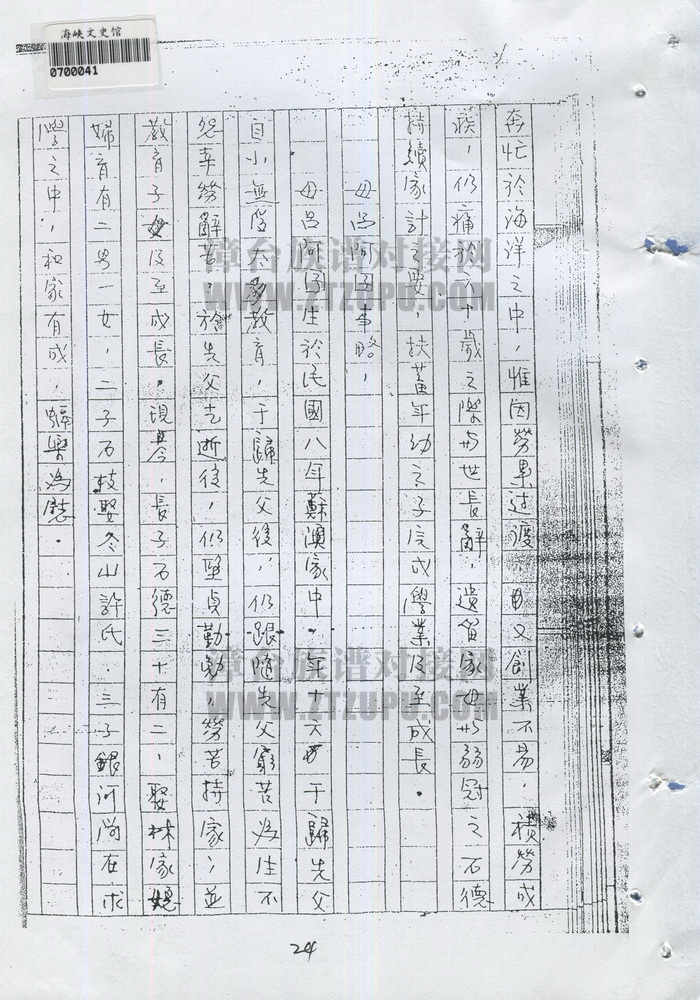 海峡文史馆
0700041
奔忙於海洋之中，惟因勞累过渡，且又創業不易，積勞成
疾，仍痛於六十歲之際与世長辭，遺留家母与弱冠之石德
持續家計之要，扶萬年幼之子完成學業及至成長。
母呂阿仔事略，
母呂阿仔生於民國八年蘇澳家中，年十六才于歸先父
自小無受太多教育，于歸先父後，仍跟隨先父窮苦為生不
怨辛勞辭苦，於先父去逝後，仍堅貞勤勉，勞苦持家，並
教育子女及至成長。現今，長子石德三十有二，娶林家媳
婦育有二男一女，二子石枝娶冬山許氏，三子銀河尚在求
學之中，和家有成，暢樂為慰。
漳台族谱对接网
WWW.ZTZUPU.COM
漳台族谱对接网
WWW.ZTZUPU.COM
24